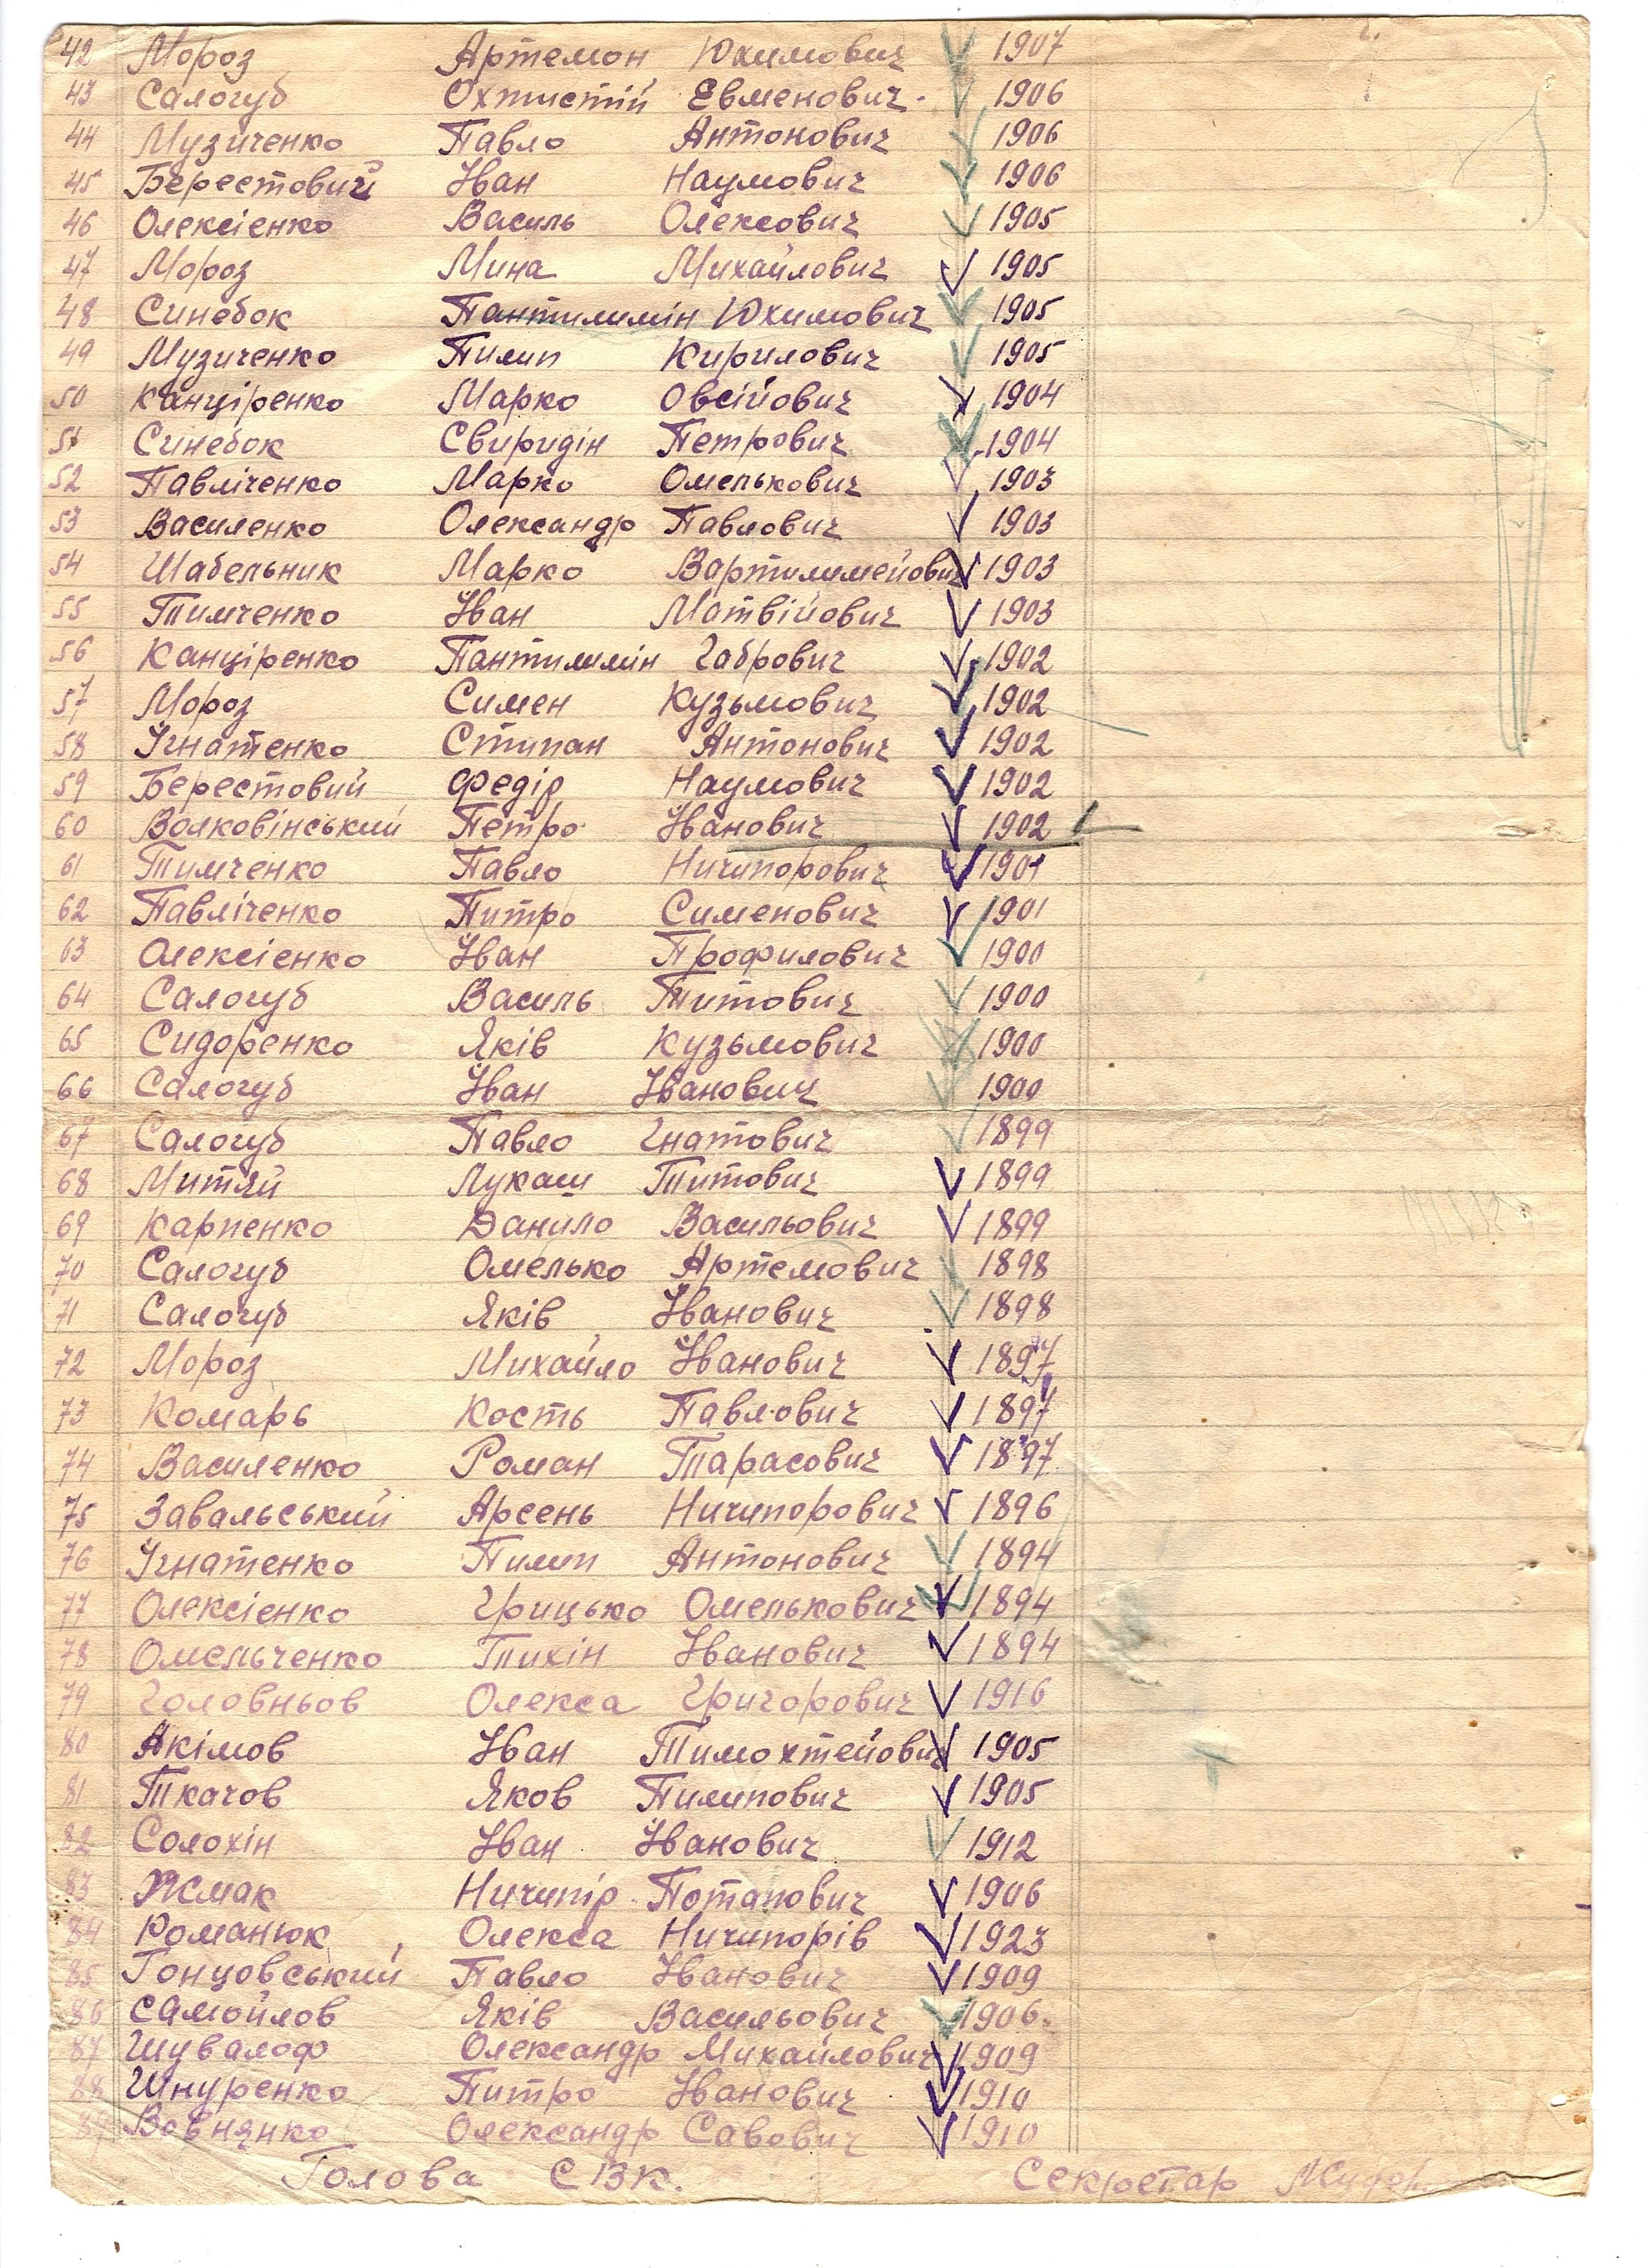 42 Мороз Артемон Юхимович 1907
43 Салогуб Охтистій Евменович. 1906
44 Музиченко Павло Антонович 1906
45 Берестовий Іван Наумович 1906
46 Олексієнко Василь Олексович 1905
47 Мороз Мина Михайлович 1905
48 Синебок Пантилимін Юхимович 1905
49 Музиченко Пилип Кирилович 1905
50 Канціренко Марко Овсійович 1904
51 Синебок Свиридін Петрович 1904
52 Павліченко Марко Омелькович 1903
53 Василенко Олександр Павлович 1903
54 Шабельник Марко Вартилимейович 1903
55 Тимченко Іван Матвійович 1903
56 Канціренко Пантилимін Габрович 1902
57 Мороз Симен Кузьмович 1902
58 Ігнатенко Стипан Антонович 1902
59 Берестовий Федір Наумович 1902
60 Волковінський Петро Іванович 1902
61 Тимченко Павло Ничипорович 1901
62 Павліченко Питро Сименович 1901
63 Олексієнко Іван Профилович 1900
64 Салогуб Василь Титович 1900
65 Сидоренко Яків Кузьмович 1900
66 Салогуб Іван Іванович 1900
67 Салогуб Павло Гнатович 1899
68 Митяй Лукаш Титович 1899
69 Карпенко Данило Васильович 1899
70 Салогуб Омелько Артемович 1898
71 Салогуб Яків Іванович 1898
72 Мороз Михайло Іванович 1897
73 Комарь Кость Павлович 1897
74 Василенко Роман Тарасович 1897
75 Завальський Арсень Ничипорович 1896
76 Ігнатенко Пилип Антонович 1894
77 Олексієнко Грицько Омелькович 1894
78 Омельченко Тихін Іванович 1894
79 Головньов Олекса Григорович 1916
80 Якімов Іван Тимохтейович 1905
81 Ткачов Яков Пилипович 1905
82 Солохін Іван Іванович 1912
83 Жмак Ничипір Потапович 1906
84 Романюк Олекса Ничипорів 1923
85 Гонцовський Павло Іванович 1909
86 Самойлов Яків Васильович 1906.
87 Шувалоф Олександр Михайлович 1909
88 Шнуренко Питро Іванович 1910
89 Вовнянко Олександр Савович 1910
Голова СВК. Секретар